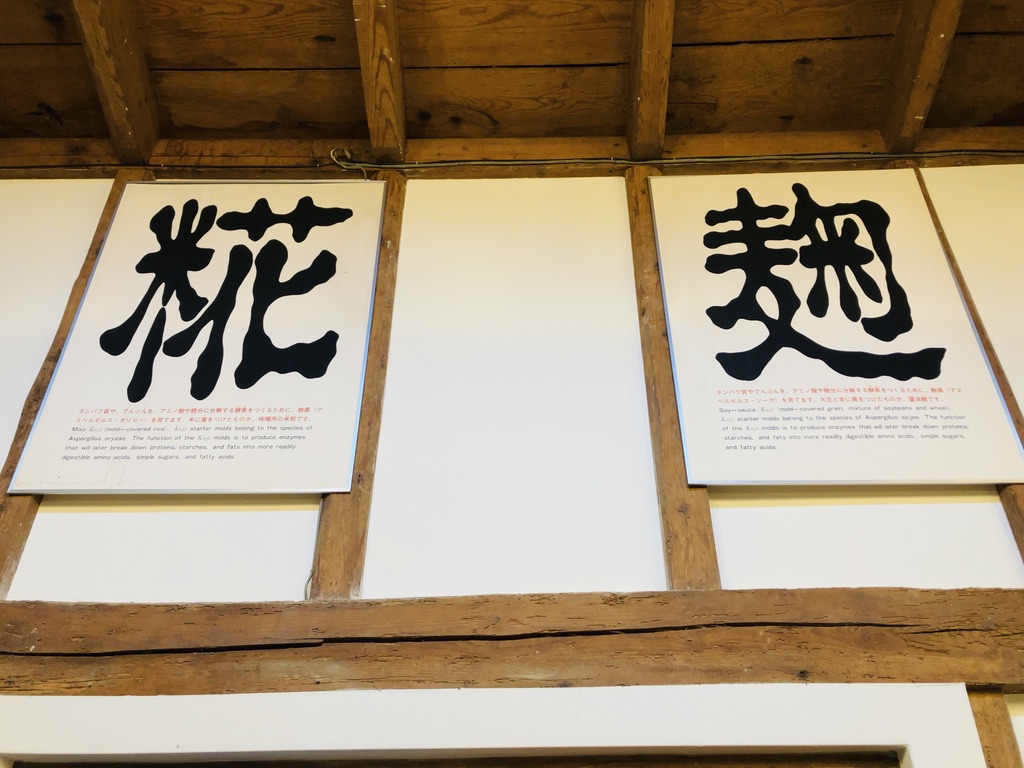 糀
タンパク質や、でんぷんを、アミノ酸や糖分に分解する酵素をつくるために、麹菌（ア
スペルギルス・オリゼー）を育てます。米に菌をつけたものが、味噌用の米糀です。
Miso Koji (mold—covered rice) Koji starter molds belong to the species of
Aspergillus oryzae. The function of the Koji molds is to produce enzymes
that will later break down proteins, starches, and fats into more readily
digestible amino acids, simple sugars, and fatty acids.
麹
タンパク質やでんぷんを、アミノ酸や糖分に分解する酵素をつくるために、麹菌（アス
ペルギルス・ソーヤ）を育てます。大豆と麦に菌をつけたものが、醤油麹です。
Soy—sauce Koji (mold—covered grain, mixture of soybeans and wheat)
Koji starter molds belong to the species of Aspergillus sojae. The function
of the Koji molds is to produce enzymes that will later break down proteins,
starches, and fats into more readily digestible amino acids, simple sugars,
and fatty acids.